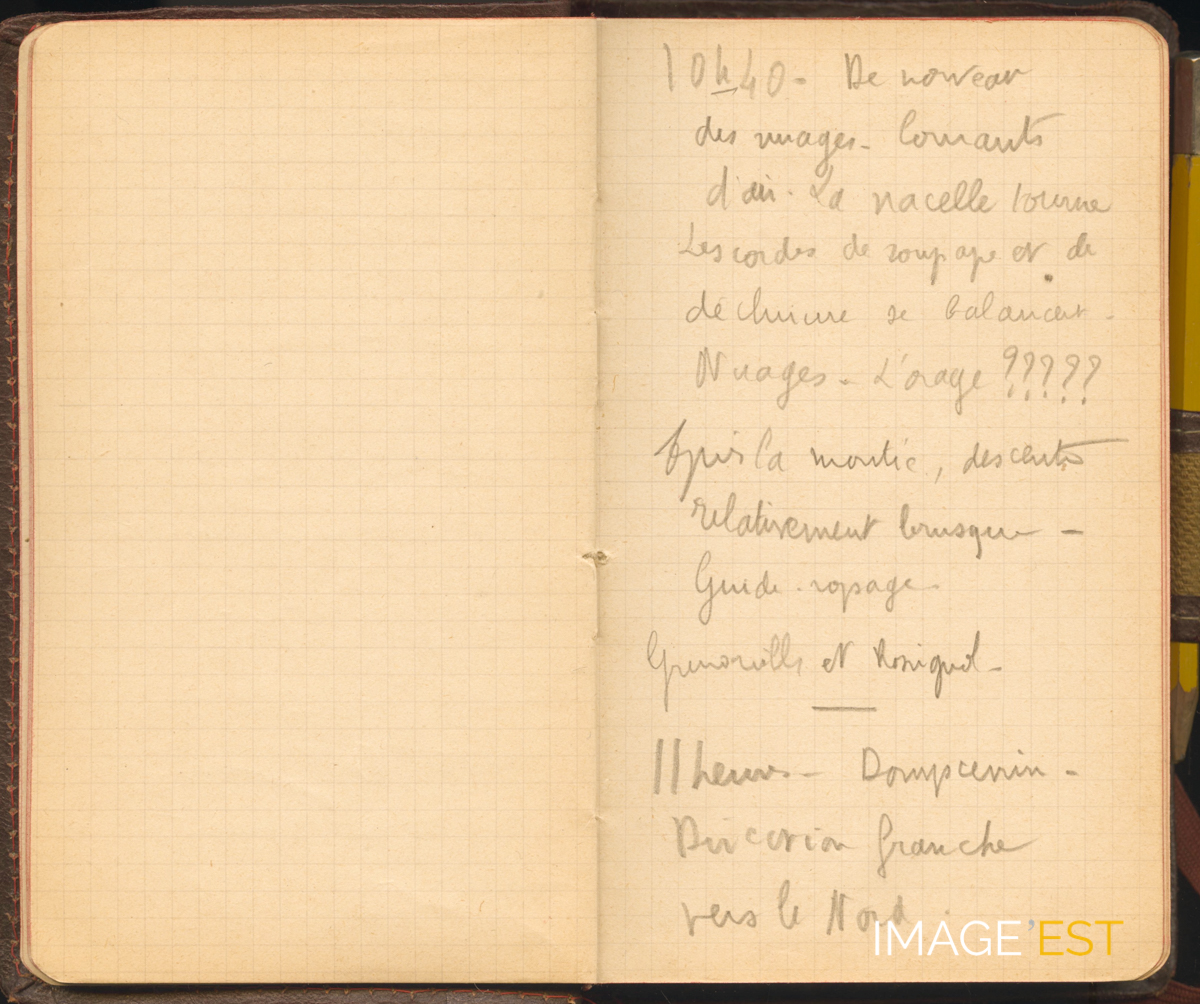 10h40 - De nouveau
des nuages - Courants
d'air. La nacelle tourne
Les cordes de soupape et de
déchirure se balancent -
Nuages - L'orage ?????
Après la montée, descente
relativement brusque -
Guide-ropage -
Grenouilles et Rossignol -
11 heures - Dompcevrin -
Direction franche
vers le Nord.
IMAGE'EST